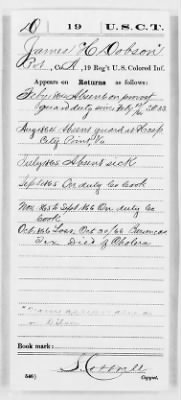 D 19 U.S.C.T.
James H Dobson
Pvt, Co. A, 19 Reg't U.S. Colored Inf.
Appears on Returns as follows:
Absent on provost
guard duty since
Aug 1864 Absent guard at Hosp
City Point, Va
July 1865 Absent sick
Sept 1865 On duty Co Cook
Nov 1865 to Sept 1866 On duty Co
Cook
Oct 1866 Loss, Oct 30/66
Tex Died of Cholera
Book mark:
(546)
Copyist.